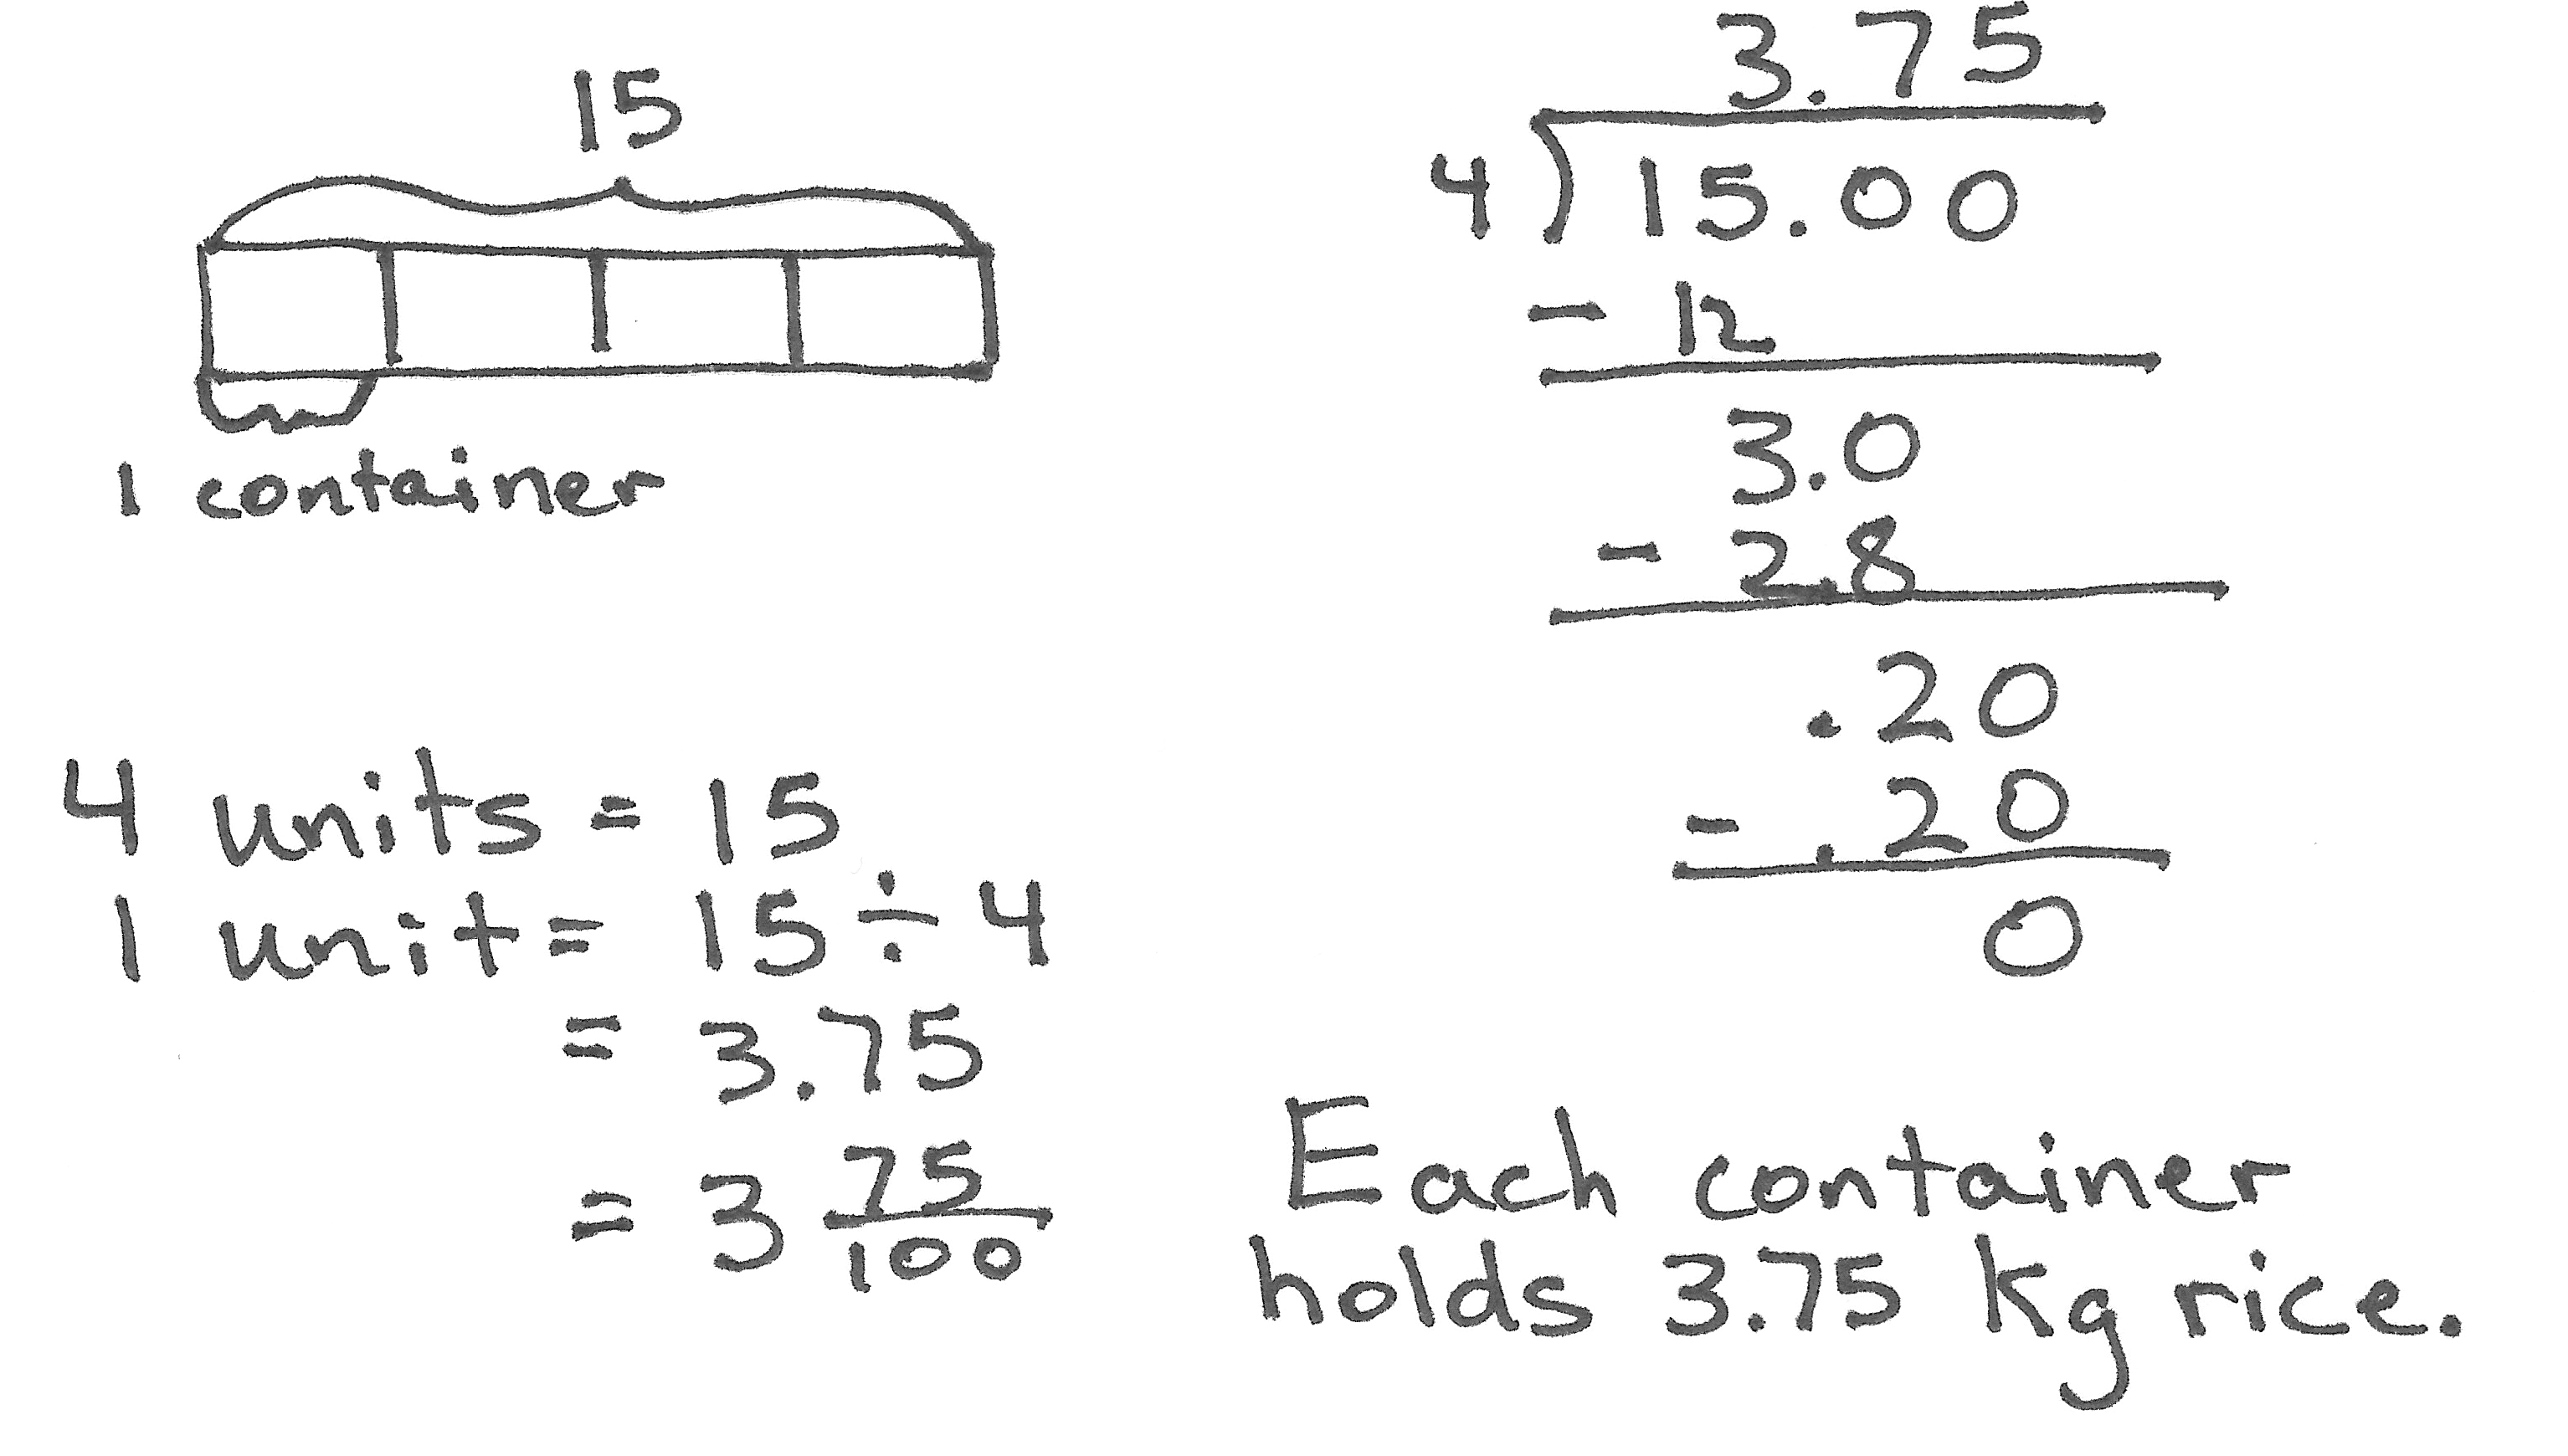 15
1 container
4 units = 15
1 unit = 15 ÷ 4
= 3.75
= 3 75/100
3.75
4 ) 15.00
- 12
3.0
- 2.8
.20
- .20
0
Each container
holds 3.75 kg rice.